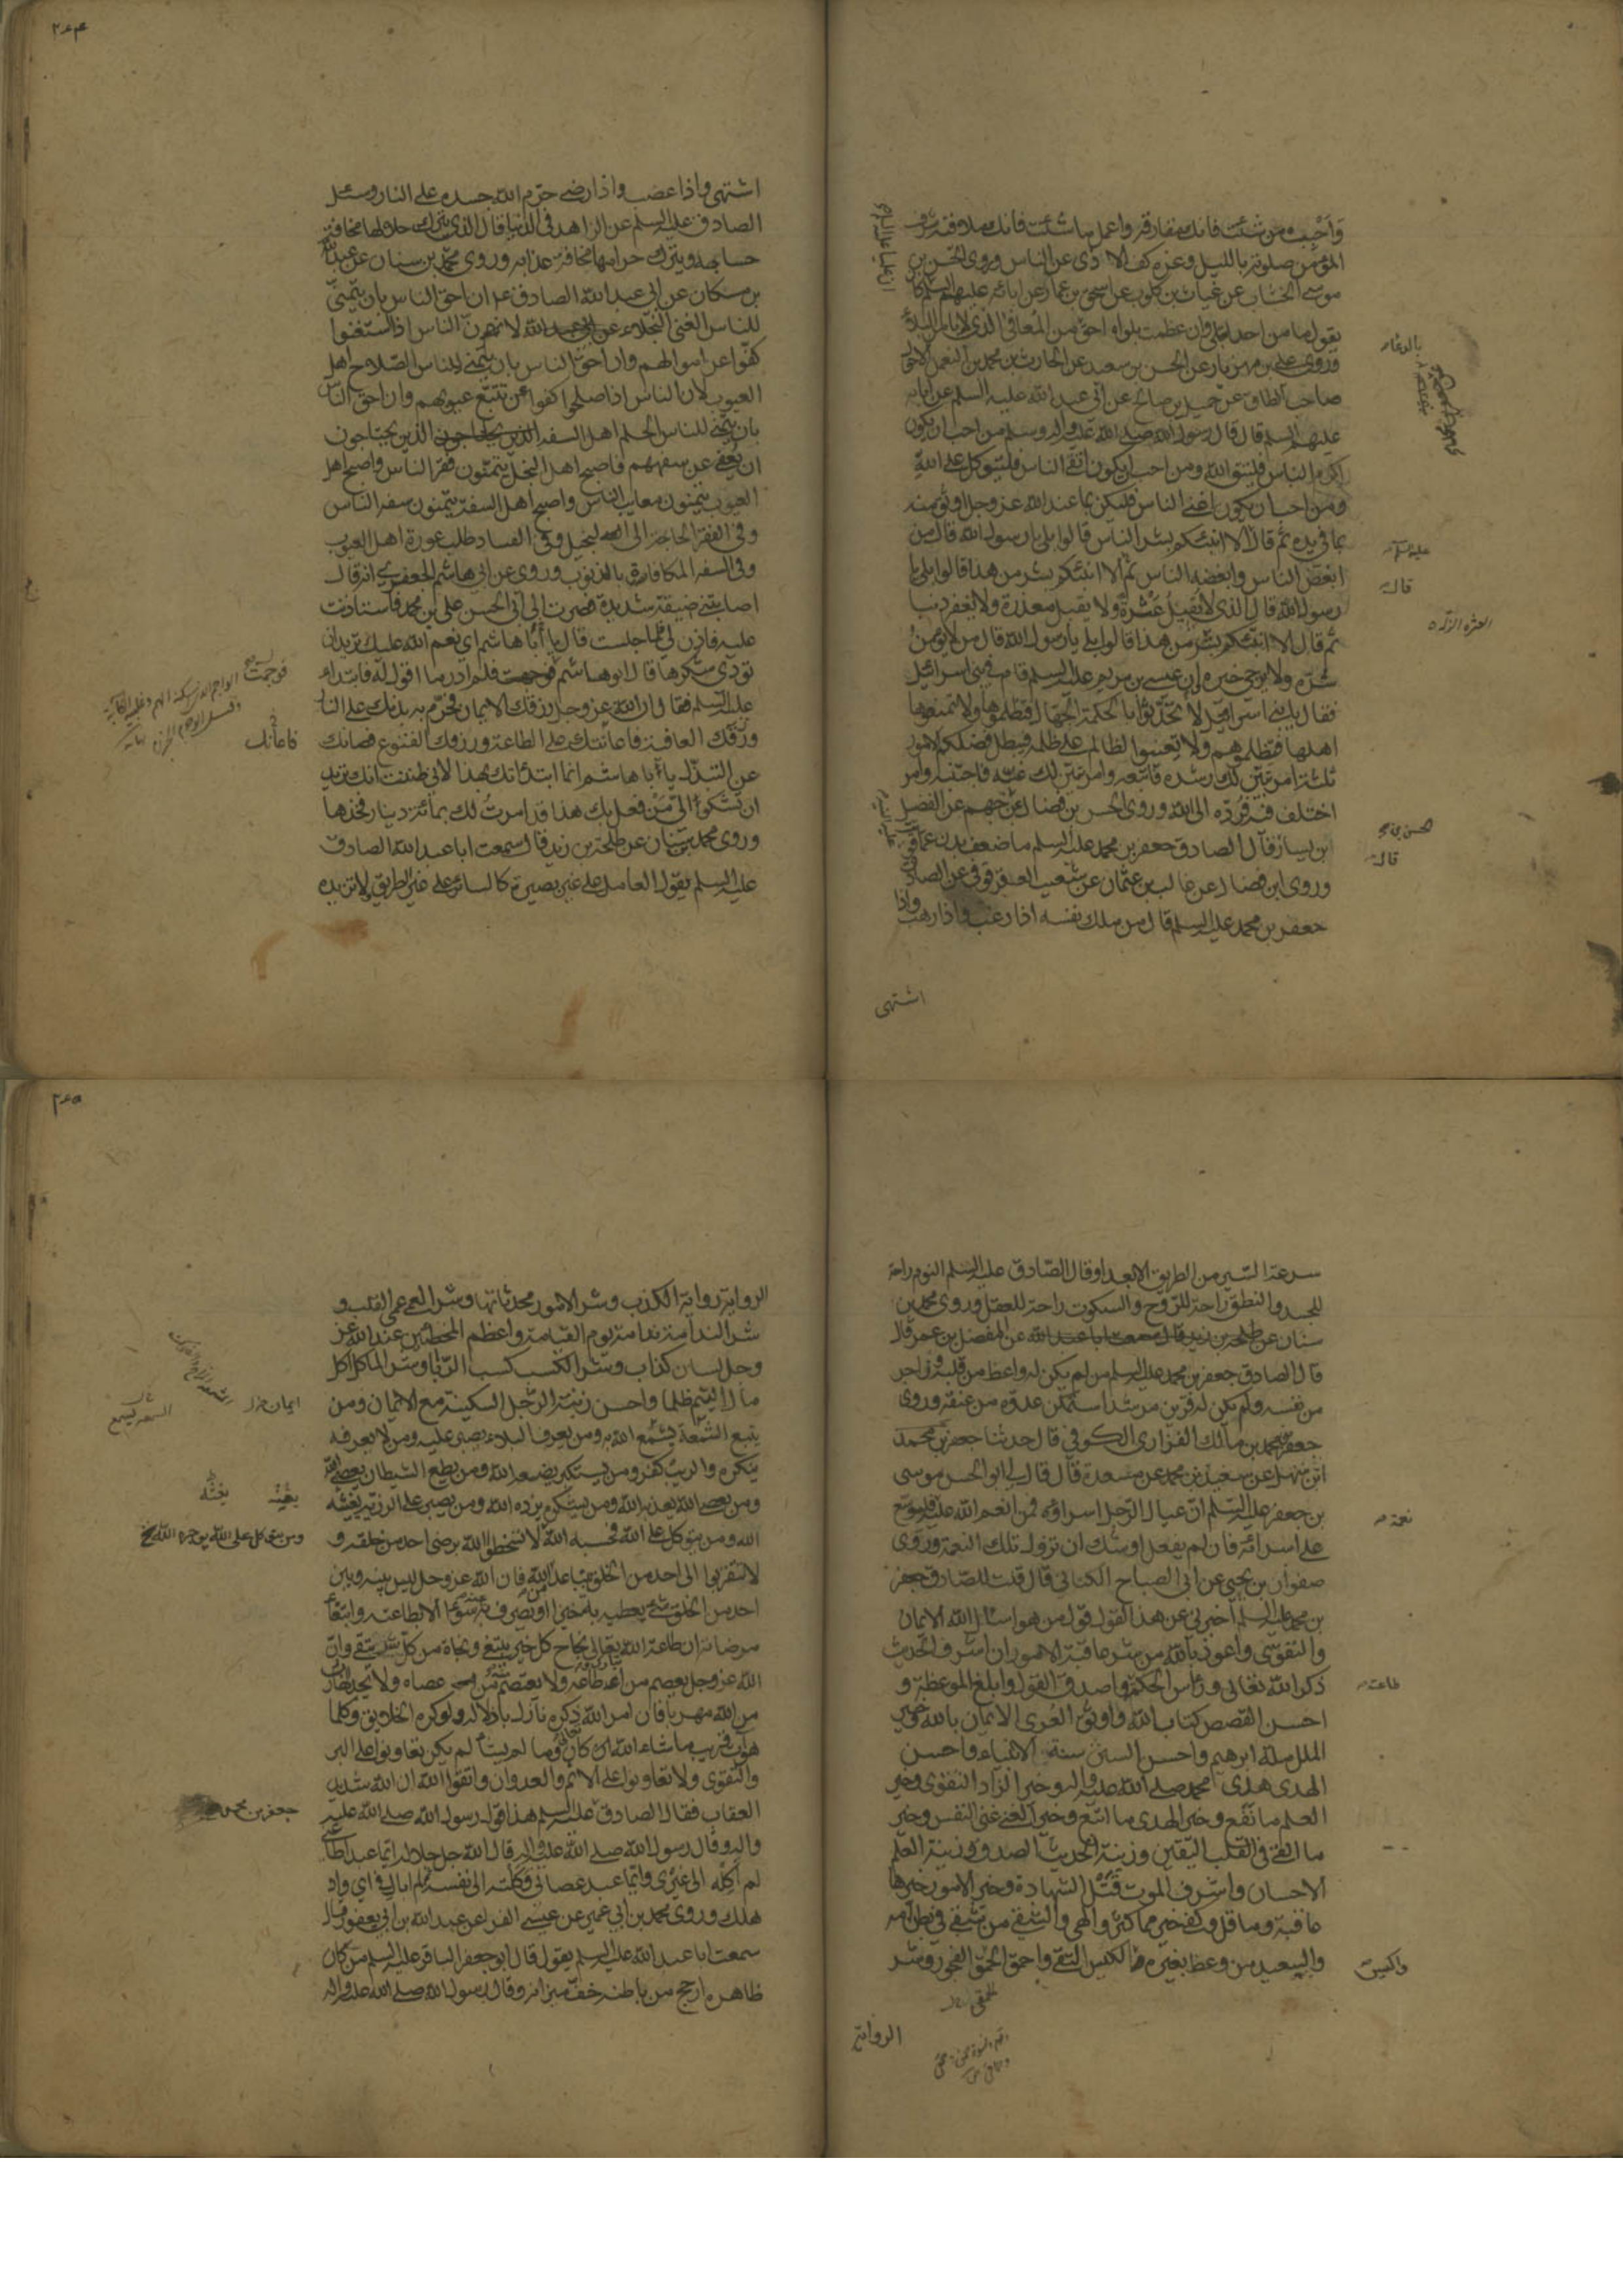 وَاَحْبِبْ من شئت فانك مفارقه واعمل ما شئت فانك ملاقيه شرف
المؤمن صلوته بالليل وعزه كف الاذى عن الناس وروى الحسن بن
موسى الخشاب عن غياث بن كلوب عن اسحق بن عمار عن ابائه عليهم السلم كان
يقول ما من احد ابتلى وان عظمت بلواه احق من المعافى الذى لا يامن البلاء
وروى على بن مهزيار عن الحسن بن سعيد عن الحارث بن محمد بن النعمن الاحول
صاحب الطاق عن جميل بن صالح عن ابى عبد الله عليه السلم عن ابائه
عليهم السلم قال قال رسول الله صلى الله عليه واله وسلم من احب ان يكون
اكرم الناس فليتق الله ومن احب ان يكون اتقى الناس فليتوكل على الله
ومن احب ان يكون اغنى الناس فليكن بما عند الله عز وجل اوثق منه
بما فى يده ثم قال الا انبئكم بشر الناس قالوا بلى يا رسول الله قال من
ابغض الناس وابغضه الناس ثم الا انبئكم بشر من هذا قالوا بلى يا
رسول الله قال الذى لا يقيل عَثْرة ولا يقبل معذرة ولا يغفر ذنبا
ثم قال الا انبئكم بشر من هذا قالوا بلى يا رسول الله قال من لا يؤمن
شره ولا يرجى خيره ان عيسى بن مريم عليه السلم قام فى بنى اسرائيل
فقال يا بنى اسرائيل لا تحدّثوا بالحكمة الجهال فتظلموها ولا تمنعوها
اهلها فتظلموهم ولا تعينوا الظالم على ظلمه فيبطل فضلكم الامور
ثلثة امر تبين لك رشده فاتبعه وامر تبين لك غيه فاجتنبه وامر
اختلف فيه فردّه الى الله وروى الحسن بن فضال عن جهم عن الفضيل
ابن يسار قال الصادق جعفر بن محمد عليه السلم ما ضعف بدن عما قويت
وروى ابن فضال عن غالب بن عثمان عن شعيب العقرقوفى عن الصادق
جعفر بن محمد عليه السلم قال من ملك نفسه اذا رغب واذا رهب واذا
اشتهى
بالدعاء
عليه السلم
قال
الحسن بن
قال
٢٤٤
اشتهى واذا غضب واذا رضى حرّم الله جسده على النار وسئل
الصادق عليه السلم عن الزاهد فى الدنيا قال الذى يترك حلالها مخافة
حسابه ويترك حرامها مخافة عذابه وروى محمد بن سنان عن عبد الله
بن مسكان عن ابى عبد الله الصادق ع ان احق الناس بان يتمنى
للناس الغنى البخلاء لان الناس اذا استغنوا
كفّوا عن اموالهم وان احق الناس بان يتمنى للناس الصّلاح اهل
العيوب لان الناس اذا صلحوا كفوا عن تتبّع عيوبهم وان احق الناس
بان يتمنى للناس الحلم اهل السفه الذين يحتاجون
ان يُعفى عن سفههم فاصبح اهل البخل يتمنّون فقر الناس واصبح اهل
العيوب يتمنون معايب الناس واصبح اهل السفه يتمنون سفه الناس
وفى الفقر الحاجة الى البخيل وفى الفساد طلب عورة اهل العيوب
وفى السفه المكافاة بالذنوب وروى عن ابى هاشم الجعفرى انه قال
اصابتنى ضيقة شديدة فصرت الى ابى الحسن على بن محمد فاستاذنت
عليه فاذن لى فلما جلست قال يا أبا هاشم اى نعم الله عليك تريد ان
تؤدى شكرها قال ابو هاشم فوجمت فلم ادر ما اقول له فابتداء
عليه السلم فقال ان الله عز وجل رزقك الايمان فحرّم به بدنك على النار
ورزقك العافية فاعانتك على الطاعة ورزقك القنوع فصانك
عن التبذل يا أبا هاشم انما ابتدأتك بهذا لانى ظننت انك تريد
ان تشكو الىّ مَنْ فعل بك هذا قد امرتُ لك بمائة دينار فخذها
وروى محمد بن سنان عن طلحة بن زيد قال سمعت ابا عبد الله الصادق
عليه السلم يقول العامل على غير بصيرة كالسائر على غير الطريق لا تزيده
فوجمت
فاعانك
سرعة السّير من الطريق الا بعدا وقال الصّادق عليه السلم النوم راحة
للجسد والنطق راحة للرّوح والسكوت راحة للعقل وروى محمد بن
سنان عن المفضل بن عمر قال
قال الصادق جعفر بن محمد عليه السلم من لم يكن له واعظ من قلبه وزاجر
من نفسه ولم يكن له قرين مرشد استمكن عدوه من عنقه وروى
جعفر بن محمد بن مالك الفزارى الكوفى قال حدثنا جعفر بن محمد
ابن سهل عن سعيد بن محمد عن مسعدة قال قال لى ابو الحسن موسى
بن جعفر عليه السّلم ان عيال الرّجل اسراؤه فمن انعم الله عليه فليوسّع
على اسرائه فان لم يفعل اوشك ان تزول تلك النعمة وروى
صفوان بن يحيى عن ابى الصباح الكنانى قال قلت للصّادق جعفر
بن محمد عليه السلم اخبرنى عن هذا القول قول من هو اسئل الله الايمان
والتقوى واعوذ بالله من شر عاقبة الامور ان اشرف الحديث
ذكر الله تعالى ورأس الحكمة واصدق القول وابلغ الموعظة و
احسن القصص كتاب الله واوثق العُرى الايمان بالله وخير
الملل ملة ابرهيم واحسن السنن سنة الانبياء واحسن
الهدى هدى محمد صلى الله عليه واله وخير الزاد التقوى وخير
العلم ما نَفَع وخير الهدى ما اتّبع وخير الغنى غنى النفس وخير
ما القى فى القلب اليقين وزينة الحديث الصدق وزينة العلم
الاحسان واشرف الموت قَتْل الشهادة وخير الامور خيرها
عاقبة وما قل وكفى خير مما كثر والهى والشقى من شقى فى بطن امه
والسعيد من وعظ بغيره الكيس التقى واحمق الحمق الفجور وشر
الرواية
نعمة
طاعته
واكيس
٢٤٥
الرواية رواية الكذب وشر الامور محدثاتها وشر العمى عمى القلب و
شر الندامة ندامة يوم القيامة واعظم المخطئين عند الله عز
وجل لسان كذاب وشر الكسب كسب الرّبا وشر الماكل اكل
مال اليتيم ظلما واحسن زينة الرّجل السكينة مع الايمان ومن
يتبع السّمعة يُسمّع الله به ومن يعرف البلاء يصبر عليه ومن لا يعرفه
ينكره والريب كفر ومن يستكبر يضعه الله ومن يطع الشيطان يعص الله
ومن يعص الله يعذبه الله ومن يشكره يزده الله ومن يصبر على الرزية يغثه
الله ومن يتوكل على الله فحسبه الله لا تسخطوا الله برضى احد من خلقه و
لا تتقربوا الى احد من الخلق بتباعد من الله فان الله عز وجل ليس بينه وبين
احد من الخلق شىء يعطيه به خيرا او يصرف به عنه سوءا الا بطاعته وابتغاء
مرضاته ان طاعة الله تعالى نجاح كل خير يبتغى ونجاة من كل شر يتقى وان
الله عز وجل يعصم من اطاعه ولا يعتصم منه من عصاه ولا يجد الهارب
من الله مهربا فان امر الله ذكره نازل باذلاله ولو كره الخلايق وكلما
هو آت قريب ما شاء الله كان وما لم يشأ لم يكن تعاونوا على البر
والتقوى ولا تعاونوا على الاثم والعدوان واتقوا الله ان الله شديد
العقاب فقال الصادق عليه السلم هذا قول رسول الله صلى الله عليه
واله وقال رسول الله صلى الله عليه واله قال الله جل جلاله ايّما عبد اطاعنى
لم أكِلْه الى غيرى وايما عبد عصانى وكلته الى نفسه ثم لم ابال فى اى واد
هلك وروى محمد بن ابى عمير عن عيسى الفراء عن عبد الله بن ابى يعفور قال
سمعت ابا عبد الله عليه السلم يقول قال ابو جعفر الباقر عليه السلم من كان
ظاهره ارجح من باطنه خفّ ميزانه وقال رسول الله صلى الله عليه واله
ومن يتوكل على الله
جعفر بن محمد